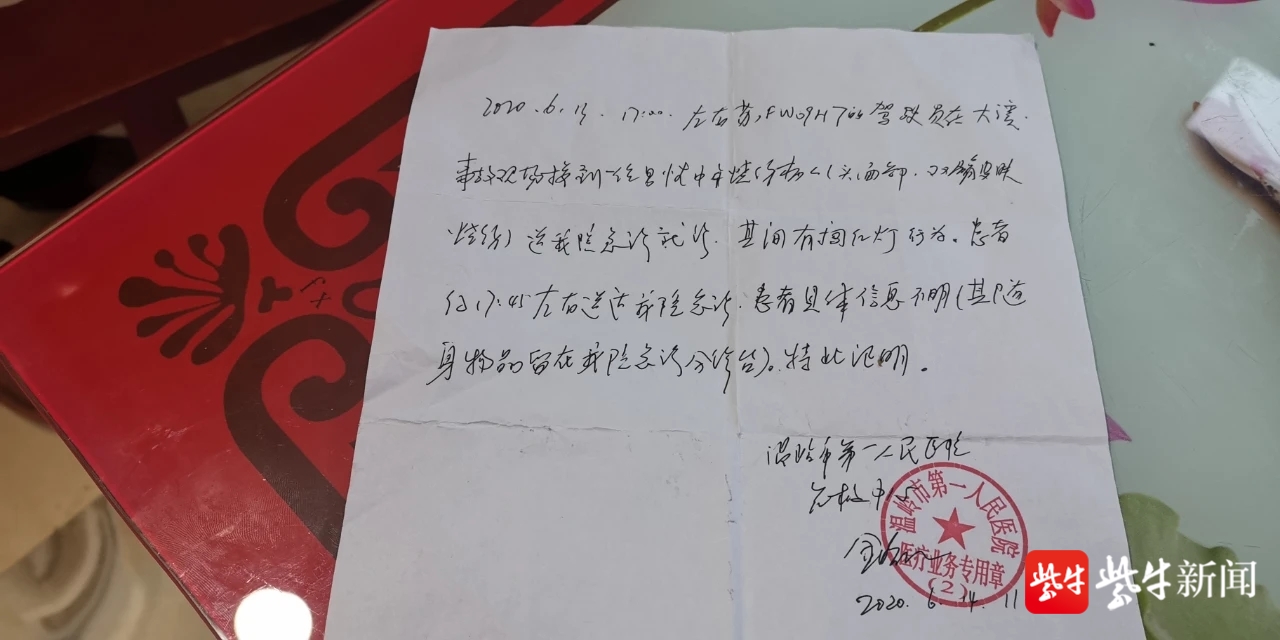 2020.6.13. 17:00. 左右苏FW09H7的驾驶员在大溪
事故现场接到一位男性中年烧伤病人(头面部、双
烧伤)送我院急诊就诊,其间有闯红灯行为。患者
约17:45左右送达我院急诊,患者具体信息不明(其随
身物品留在我院急诊分诊台)。特此证明。
温岭市第一人民医院
急救中心
温岭市第一人民医院
医疗业务专用章
(2)
2020. 6. 14. 11
紫牛 紫牛新闻